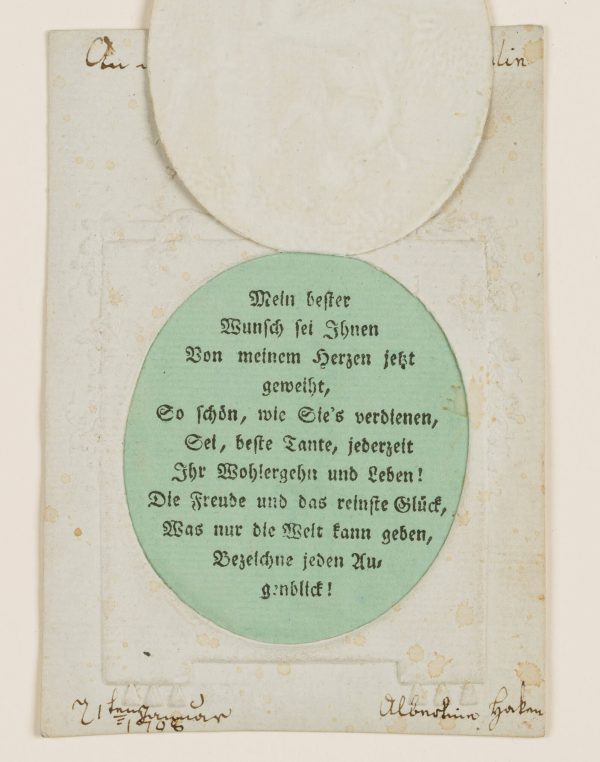 An
lin
Mein bester
Wunsch sei Ihnen
Von meinem Herzen jetzt
geweiht,
So schön, wie Sie's verdienen,
Sei, beste Tante, jederzeit
Ihr Wohlergehn und Leben!
Die Freude und das reinste Glück,
Was nur die Welt kann geben,
Bezeichne jeden Au-
genblick!
21ten Januar
Albertine Haken